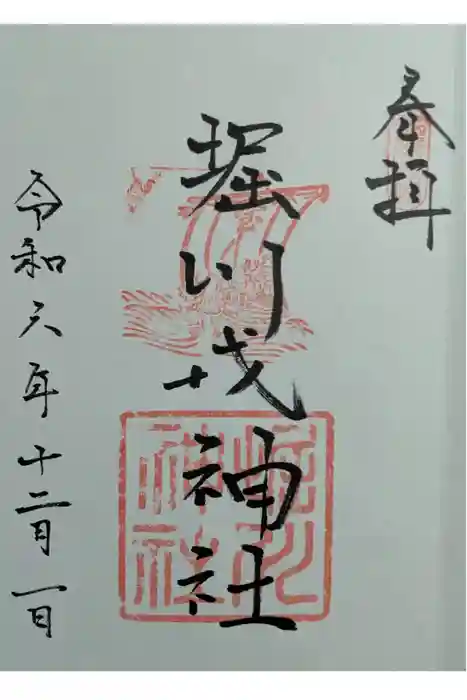 奉拝
堀川戎神社
堀川
神社
令和六年十二月一日